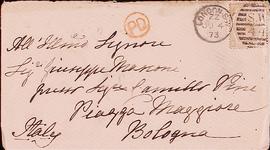 PD
LONDON S.W
Z Z
4
73
All' Illmo Signore
Sigr Giuseppe Manoni
presso Sigre Camillo Pine
Piazza Maggiore
Italy Bologna